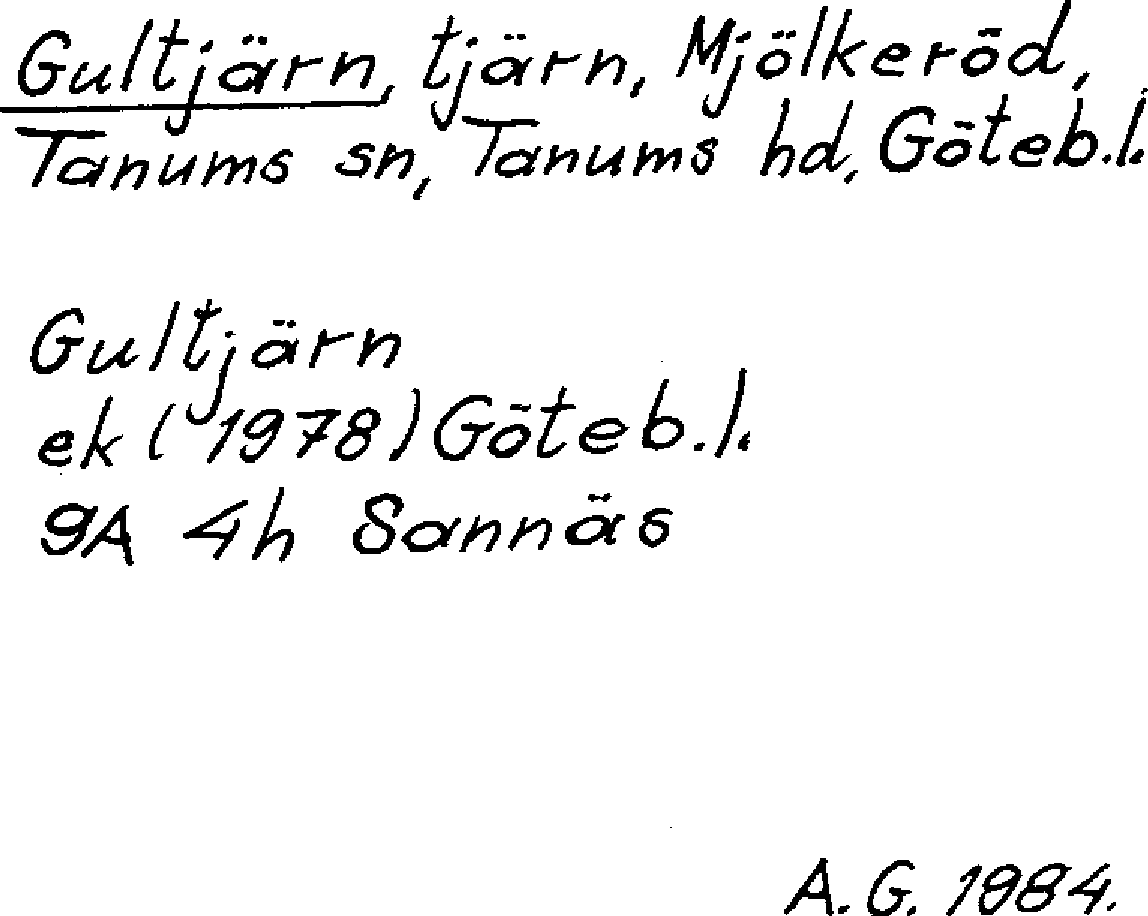 Gultjärn, tjärn, Mjölkeröd,
Tanums sn, Tanums hd, Göteb.l.
Gultjärn
ek (1978) Göteb.l.
9A 4h Sannäs
A.G. 1984.